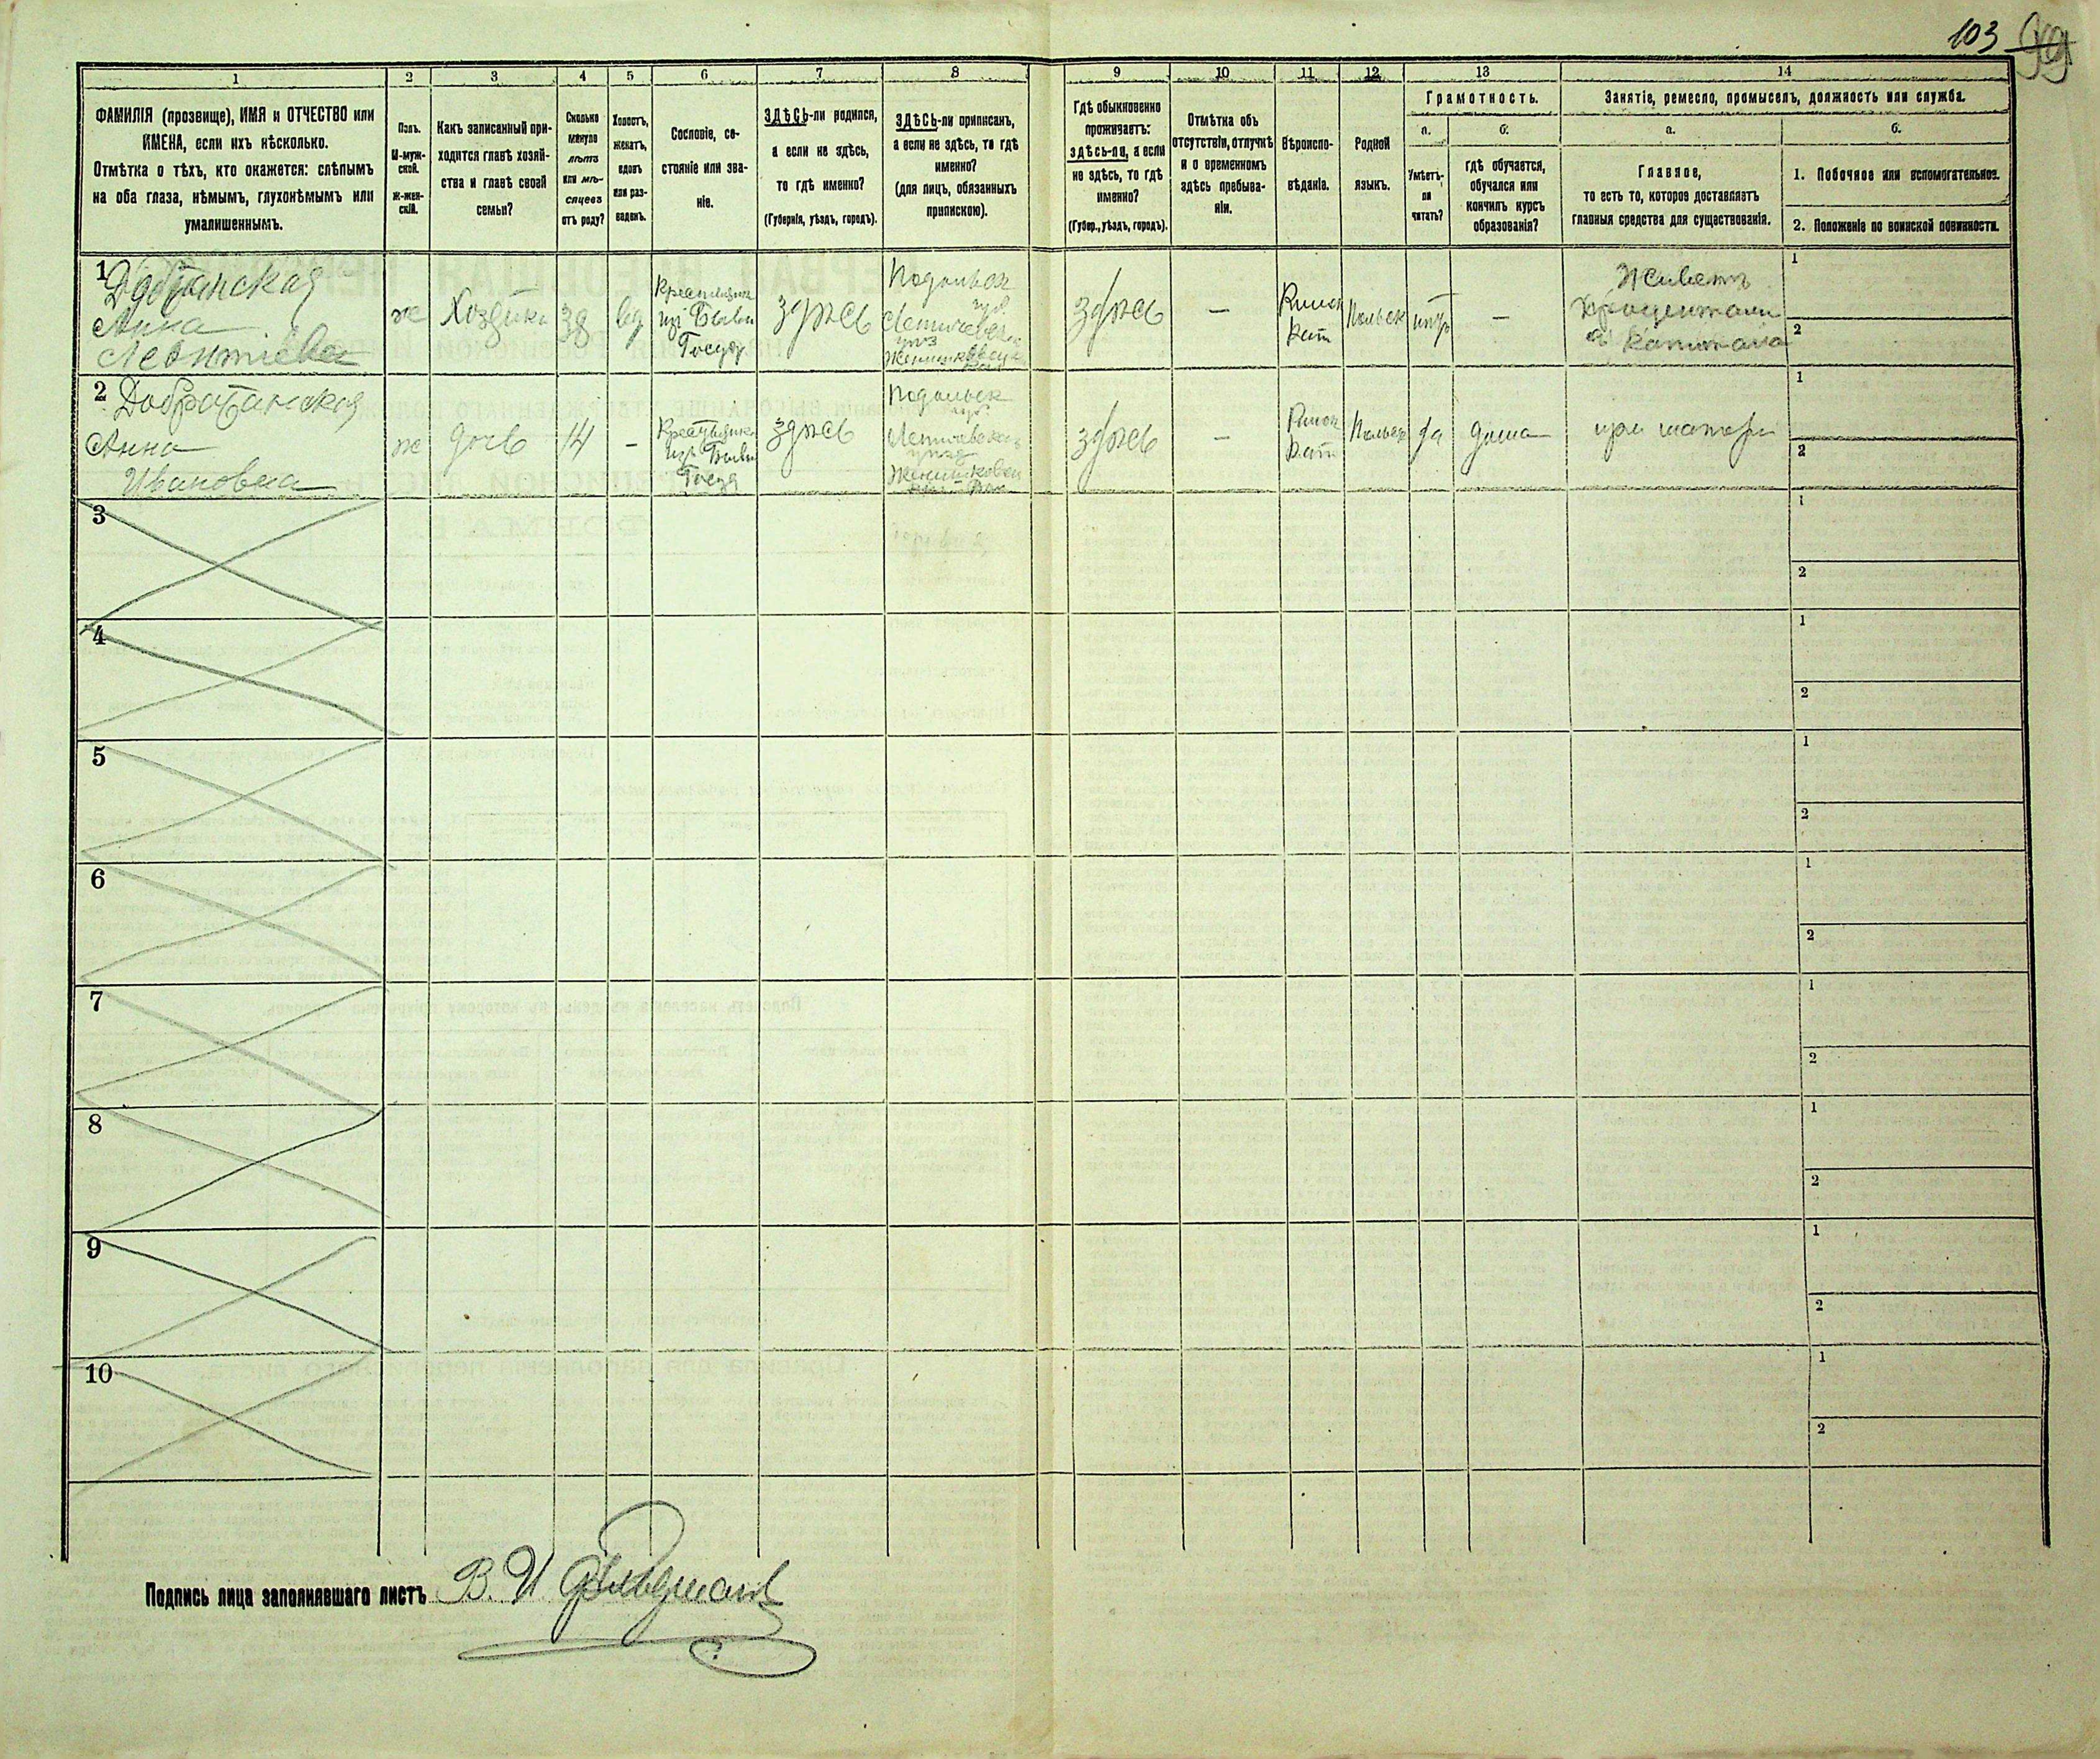 103
1 2 3 4 5 6 7 8 9 10 11 12 13 14
ФАМИЛІЯ (прозвище), ИМЯ и ОТЧЕСТВО или
ИМЕНА, если ихъ нѣсколько.
Отмѣтка о тѣхъ, кто окажется: слѣпымъ
на оба глаза, нѣмымъ, глухонѣмымъ или
умалишеннымъ.
Полъ.
М-муж-
ской.
ж-жен-
скій.
Какъ записанный при-
ходится главѣ хозяй-
ства и главѣ своей
семьи?
Сколько
минуло
лѣтъ
или мѣ-
сяцевъ
отъ роду?
Холостъ,
женатъ,
вдовъ
или раз-
веденъ.
Сословіе, со-
стояніе или зва-
ніе.
ЗДѢСЬ-ли родился,
а если не здѣсь,
то гдѣ именно?
(Губернія, уѣздъ, городъ).
ЗДѢСЬ-ли приписанъ,
а если не здѣсь, то гдѣ
именно?
(для лицъ, обязанныхъ
припискою).
Гдѣ обыкновенно
проживаетъ:
здѣсь-ли, а если
не здѣсь, то гдѣ
именно?
(Губер., уѣздъ, городъ).
Отмѣтка объ
отсутствіи, отлучкѣ
и о временномъ
здѣсь пребыва-
ніи.
Вѣроиспо-
вѣданіе.
Родной
языкъ.
Грамотность.
а.
Умѣетъ-
ли
читать?
б.
гдѣ обучается,
обучался или
кончилъ курсъ
образованія?
Занятіе, ремесло, промыселъ, должность или служба.
а.
Главное,
то есть то, которое доставляетъ
главныя средства для существованія.
б.
1. Побочное или вспомогательное.
2. Положеніе по воинской повинности.
1
Анна
Леонтіева
ж
Хозяйка
38
вд
Крестьянка
изъ Бывш
Госуд
здѣсь
Подольск
губ.
Летичевск
уѣз
здѣсь
—
Римск
Кат
Польск
нѣтъ
—
Живетъ
процентами
съ капитала
1
2
2
Анна
Ивановна
ж
дочь
14
—
Крестьянка
изъ Бывш
Госуд
здѣсь
Подольск
губ.
Летичевск
уѣзд
здѣсь
—
Римск
Кат
Польск
да
дома
при матери
1
2
3
1
2
4
1
2
5
1
2
6
1
2
7
1
2
8
1
2
9
1
2
10
1
2
Подпись лица заполнявшаго листъ В. И.